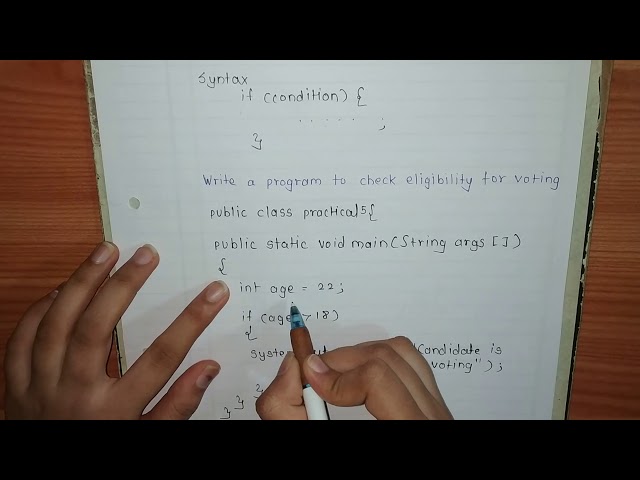 Syntax
if (condition) {
. . . . . ;
}
Write a program to check eligibility for voting
public class practical5{
public static void main(String args [])
{
int age = 22;
if (age 18)
{
"Candidate is
voting");
}
}
}